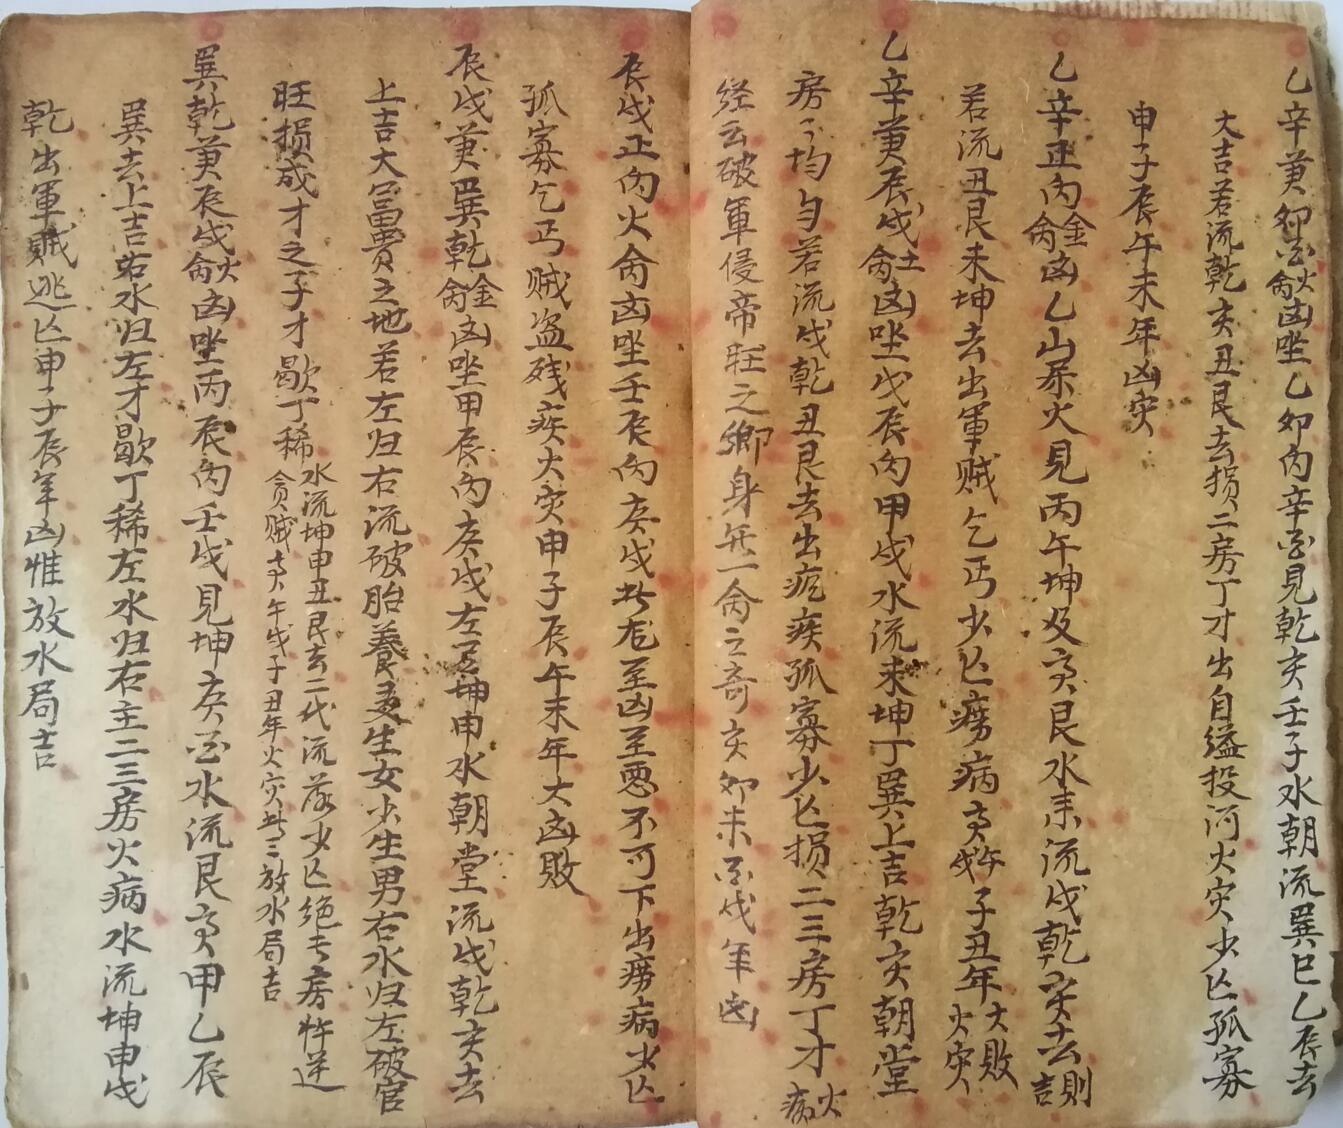 乙辛兼卯酉火禽凶坐乙卯向辛酉見乾亥壬子水朝流巽巳乙辰去
大吉若流乾亥丑艮去損二房丁才出自縊投河火灾少亡孤寡
申子辰午未年凶灾
乙辛正向金禽凶乙山屬火見丙午坤及寅艮水来流戌乾亥去則吉
若流丑艮未坤去出軍賊乞丐少亡癆病寅午戌子丑年大敗火灾
乙辛兼辰戌土禽凶坐戊辰向甲戌水流未坤丁巽上吉乾亥朝堂
房房均匀若流戌乾丑艮去出疯疾孤寡少亡損二三房丁才火病
经云破軍侵帝旺之鄉身無一禽之奇亥卯未酉戌年凶
辰戌正向火禽凶坐壬辰向庚戌此龙至凶至悪不可下出癆病少亡
孤寡乞丐賊盗残疾大灾申子辰午未年大凶敗
辰戌兼巽乾金禽凶坐甲辰向庚戌左見坤申水朝堂流戌乾亥去
上吉大冨貴之地若左归右流破胎養多生女少生男右水归左破官
旺損成才之子才歇丁稀水流坤申丑艮去二代流落少亡绝長房忤逆
贪贼寅午戌子丑年火灾共三放水局吉
巽乾兼辰戌火禽凶坐丙辰向壬戌見坤庚酉水流艮寅甲乙辰
巽去上吉右水归左才歇丁稀左水归右主二三房火病水流坤申戌
乾出軍賊逃亡申子辰年凶惟放水局吉